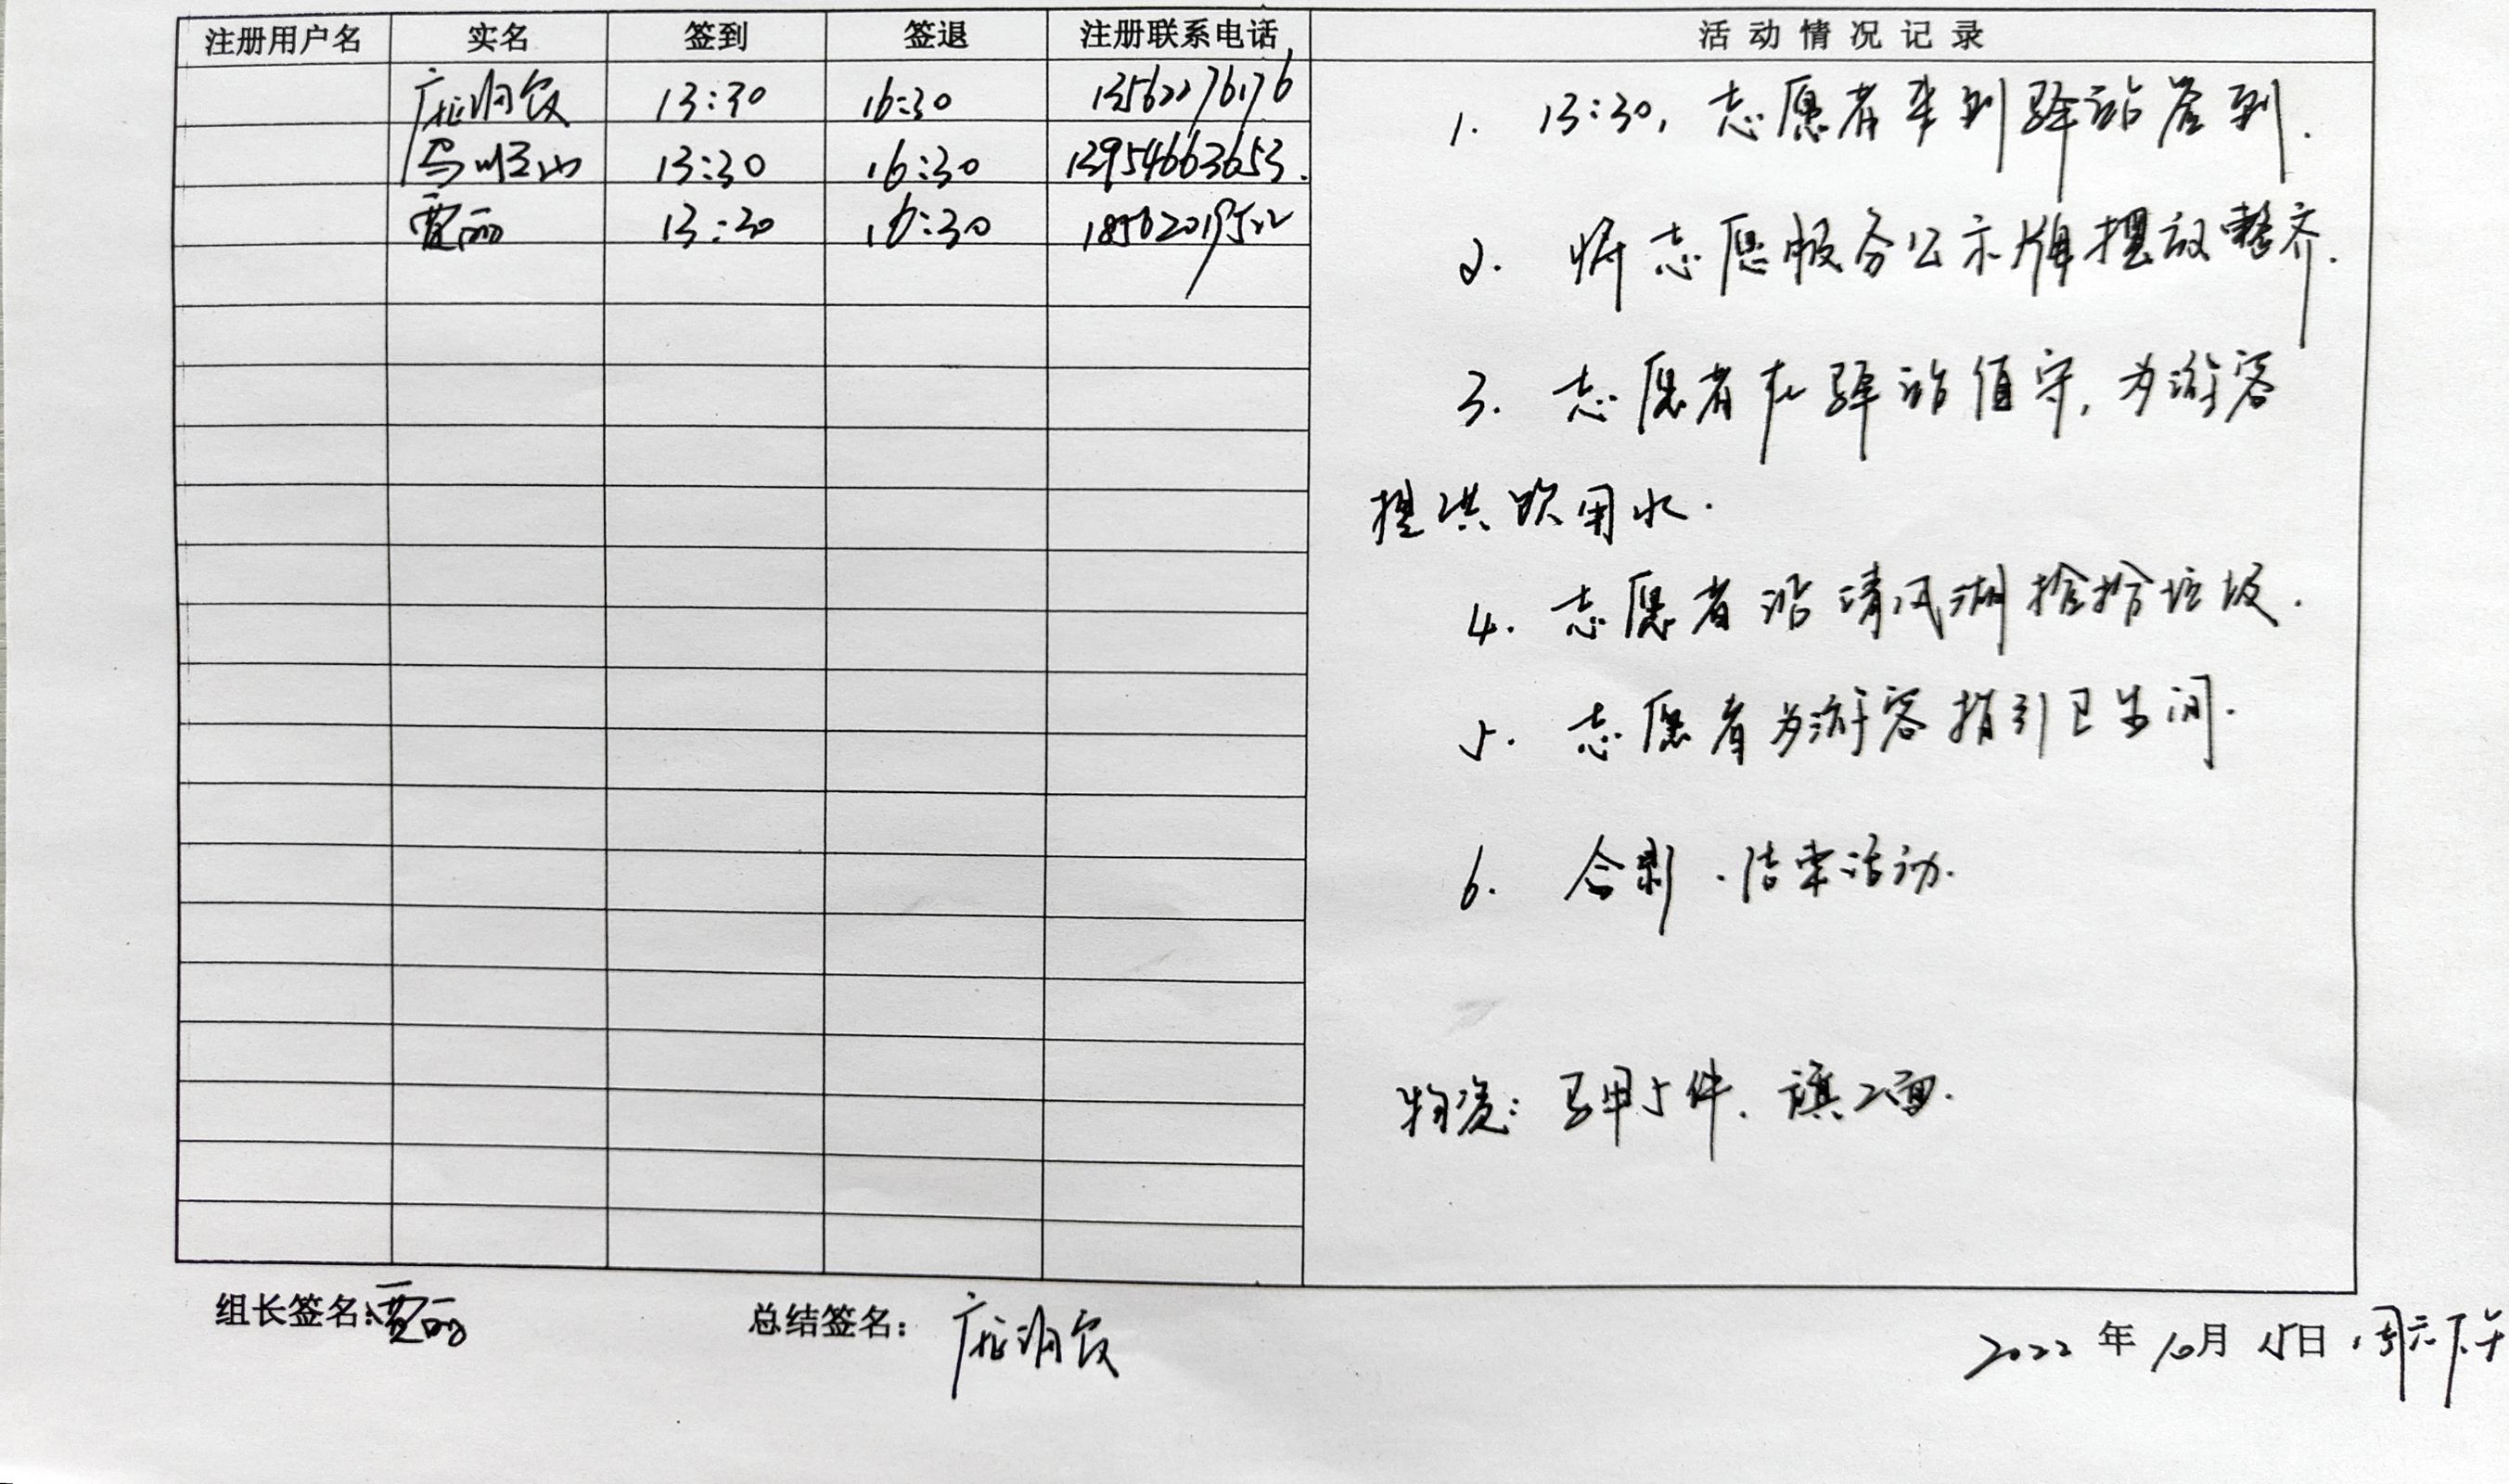 注册用户名 实名 签到 签退 注册联系电话 活动情况记录
13:30 16:30 13562276176
马顺山 13:30 16:30 13954663653.
贾丽 13:30 16:30 18562019522
1. 13:30,志愿者来到驿站签到.
2. 将志愿服务公示牌摆放整齐.
3. 志愿者在驿站值守,为游客
提供饮用水.
4. 志愿者沿清风湖捡拾垃圾.
5. 志愿者为游客指引卫生间.
6. 合影.结束活动.
物资:马甲5件、旗2面.
组长签名:贾丽 总结签名: 2022年10月15日,周六下午